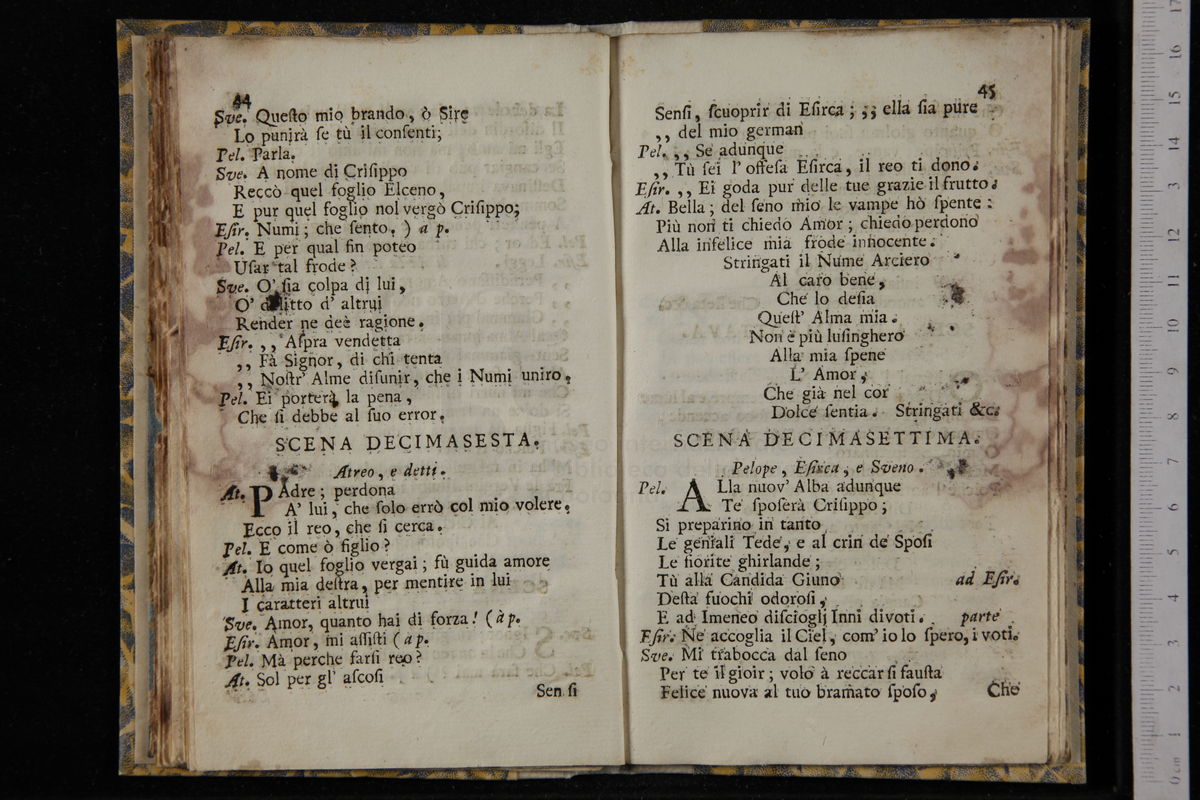 44
Sve. Queſto mio brando, ò Sire
Lo punirà ſe tù il conſenti;
Pel. Parla.
Sve. A nome di Criſippo
Reccò quel foglio Elceno,
E pur quel foglio nol vergò Criſippo;
Eſir. Numi; che ſento. ) a p.
Pel. E per qual fin poteo
Uſar tal frode?
Sve. O' ſia colpa di lui,
O' delitto d' altrui
Render ne deè ragione.
Eſir. ,, Aſpra vendetta
,, Fà Signor, di chi tenta
,, Noſtr' Alme diſunir, che i Numi uniro.
Pel. Ei porterà la pena,
Che ſi debbe al ſuo error.
SCENA DECIMASESTA.
Atreo, e detti.
At. PAdre; perdona
A' lui, che ſolo errò col mio volere.
Ecco il reo, che ſi cerca.
Pel. E come ò figlio?
At. Io quel foglio vergai; fù guida amore
Alla mia deſtra, per mentire in lui
I caratteri altrui
Sve. Amor, quanto hai di forza! (à p.
Eſir. Amor, mi aſſiſti (a p.
Pel. Mà perche farſi reo?
At. Sol per gl' aſcoſi
Sen ſi
45
Senſi, ſcuoprir di Eſirca; ;; ella ſia pure
,, del mio german
Pel. ,, Se adunque
,, Tù ſei l' offeſa Eſirca, il reo ti dono.
Eſir. ,, Ei goda pur delle tue grazie il frutto.
At. Bella; del ſeno mio le vampe hò ſpente:
Più non ti chiedo Amor; chiedo perdono
Alla infelice mia frode innocente.
Stringati il Nume Arciero
Al caro bene,
Che lo deſia
Queſt' Alma mia.
Non è più luſinghero
Alla mia ſpene
L' Amor,
Che già nel cor
Dolce ſentia. Stringati &c.
SCENA DECIMASETTIMA.
Pelope, Eſirca, e Sveno.
Pel. ALla nuov' Alba adunque
Te ſpoſerà Criſippo;
Si preparino in tanto
Le geniali Tede, e al crin de Spoſi
Le fiorite ghirlande;
Tù alla Candida Giuno ad Eſir.
Deſta fuochi odoroſi,
E ad Imeneo diſcioglj Inni divoti. parte
Eſir. Ne accoglia il Ciel, com' io lo ſpero, i voti.
Sve. Mi trabocca dal ſeno
Per te il gioir; volo à reccar ſi fauſta
Felice nuova al tuo bramato ſpoſo,
Che